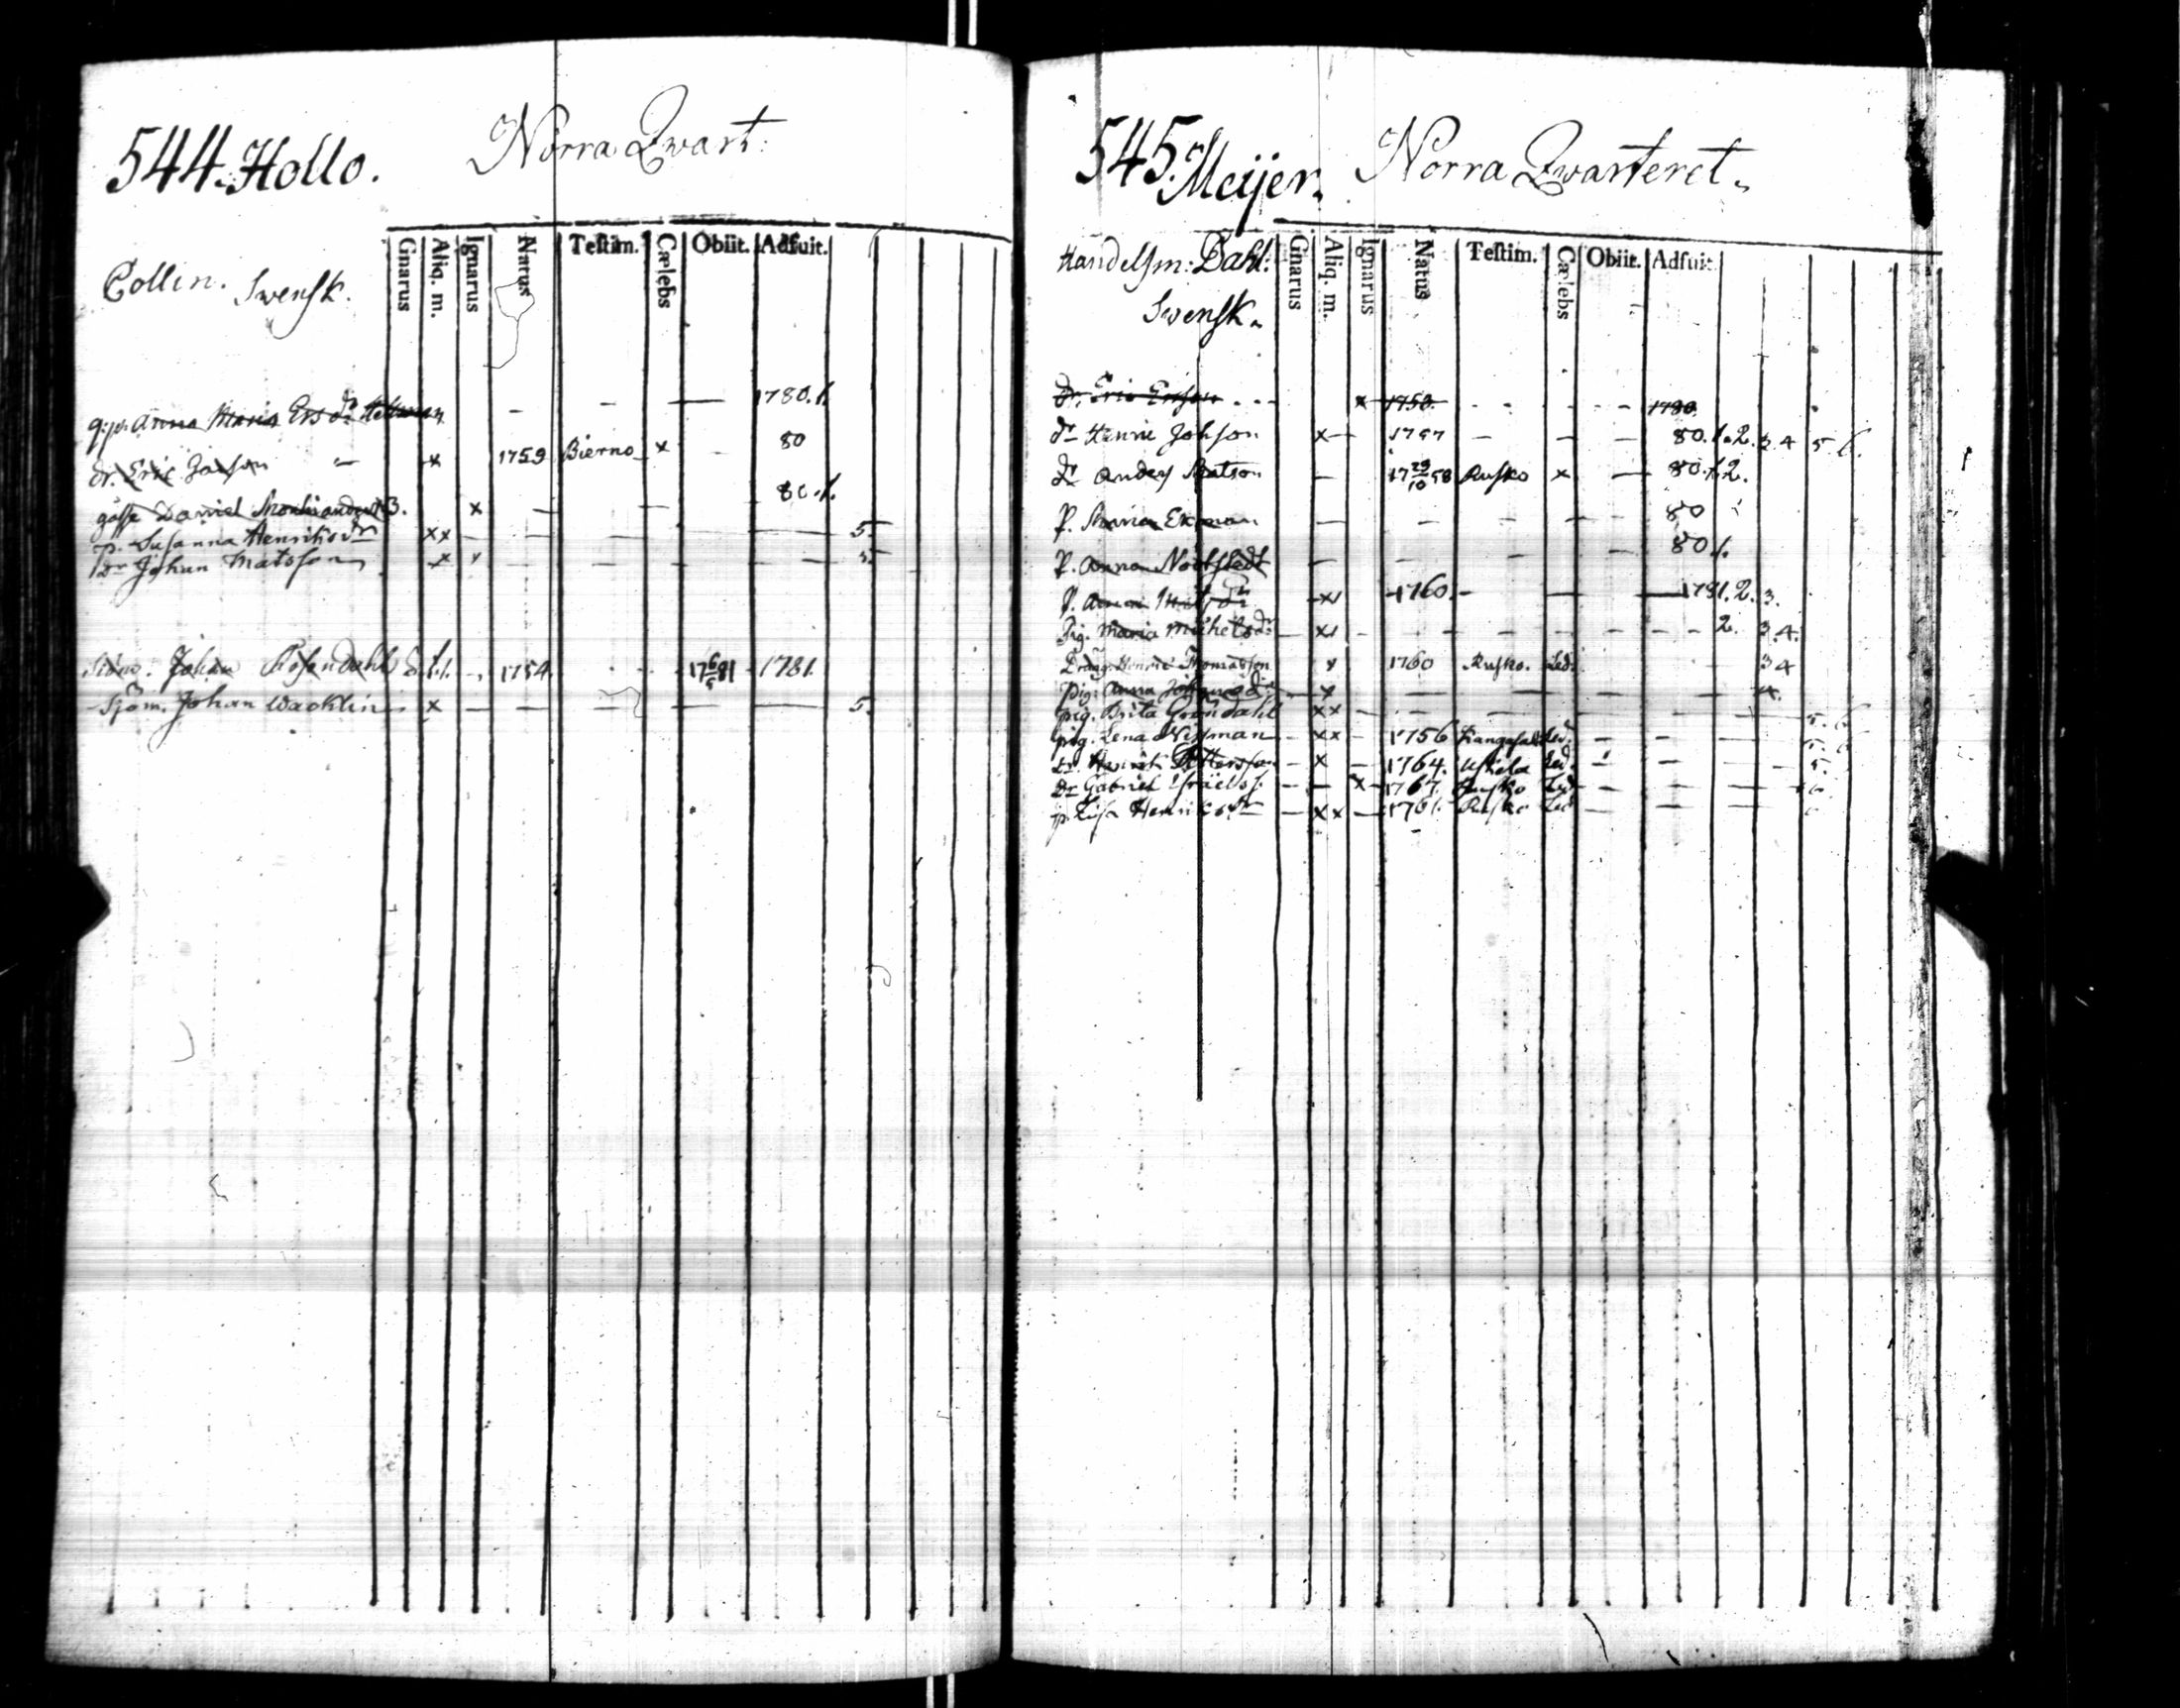 544. Hollo. Norra Qwart:
Gnarus Aliq. m. Ignarus Natus Testim. Cælebs Obiit. Adfuit.
Collin. Swensk.
q:p. Anna Maria Ersdr - - — 1780.1.
dr. Eric — x 1759 Bierno x - 80
gosse Daniel x — — 80.1.
p. Susanna Henriksdr xx — — — — — 5.
Dr Johan Matsson x x — — — — — 5.
Johan Rosendahl 1754. - - 17 6/5 81 1781.
Sjöm. Johan Wacklin x — — — — — — 5.
545. Meijer. Norra Qwarteret.
Handelsm: Dahl. Gnarus Aliq. m. Ignarus Natus Testim. Cælebs Obiit. Adfuit.
Swensk.
Dr. Eric Ersson x 1750. - - - 1780.
dr Henric Johsson x — 1757 — — 80.1.2. 3 4 5 6.
dr Anders Matson — 17 29/10 58 Rusko x — 80.1.2.
P. Maria Ekman — — — — — 80
P. Anna — — — — 80 1.
P. Anna x 1760. — — — 1781.2.3.
Pig. Maria Michelsdr x - - - - - 2. 3.4.
Dräng. Henric Thomasson x 1760 Rusko. Led. 3 4
pig: Anna x — — — — 4.
pig. Brita Gröndahl xx - - - - - 5. 6
pig. Lena xx - 1756 Led. — - — 5. 6
Dr. Henrik x — 1764. Uskela Led. — - — 5.
Dr Gabriel Israelss. — — x 1767. Rusko Led — — — 6.
p. Lisa Henricsdr — xx — 1761. Rusko Led — — — 6